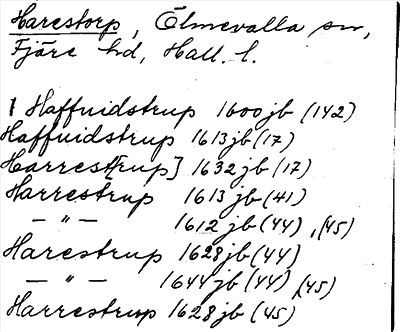 Harestorp, Ölmevalla sn,
Fjäre hd, Hall. l.
I Haffuidstrup 1600 jb (142)
Haffuidstrup 1613 jb (17)
Harrest[rup] 1632 jb (17)
Harrestrup 1613 jb (41)
— " — 1612 jb (44), (45)
Harestrup 1628 jb (44)
— " — 1644 jb (44), (45)
Harrestrup 1628 jb (45)